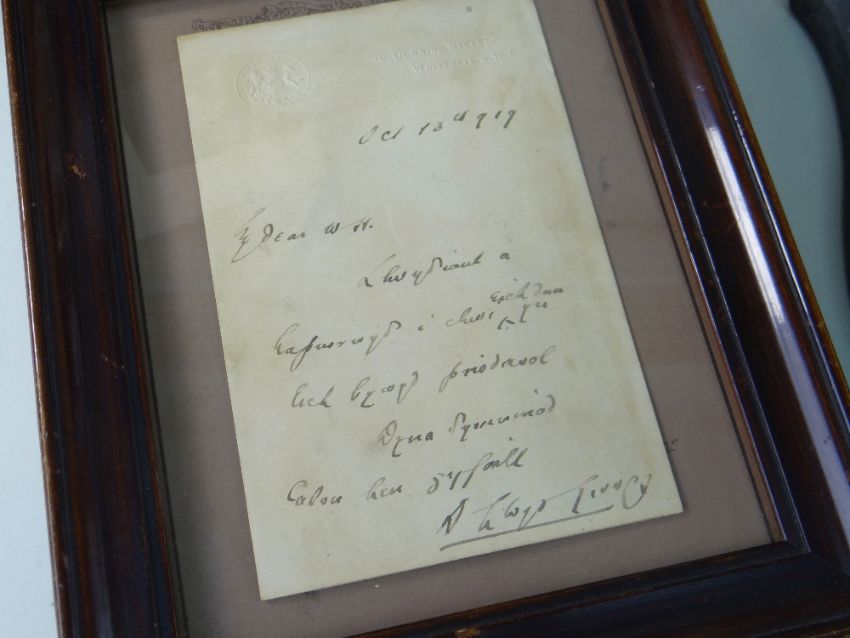 10, DOWNING STREET,
WHITEHALL, S.W.1.
Oct 13th 1919
My dear W H.
Llwydiant a
hapusrwydd i chwi Eich dau yn
Eich bywyd priodasol
Dyna ddymuniad
Calon hen gyfaill
D Lloyd George